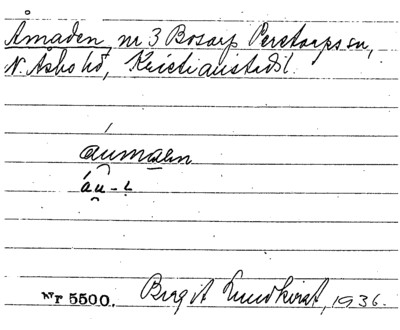 Åmaden, nr 3 Bosarp Perstorps sn,
N. Åsbo hd, Kristianstads l.
áumaen
áu-
Nr 5500. Birgit Lundkvist, 1936.